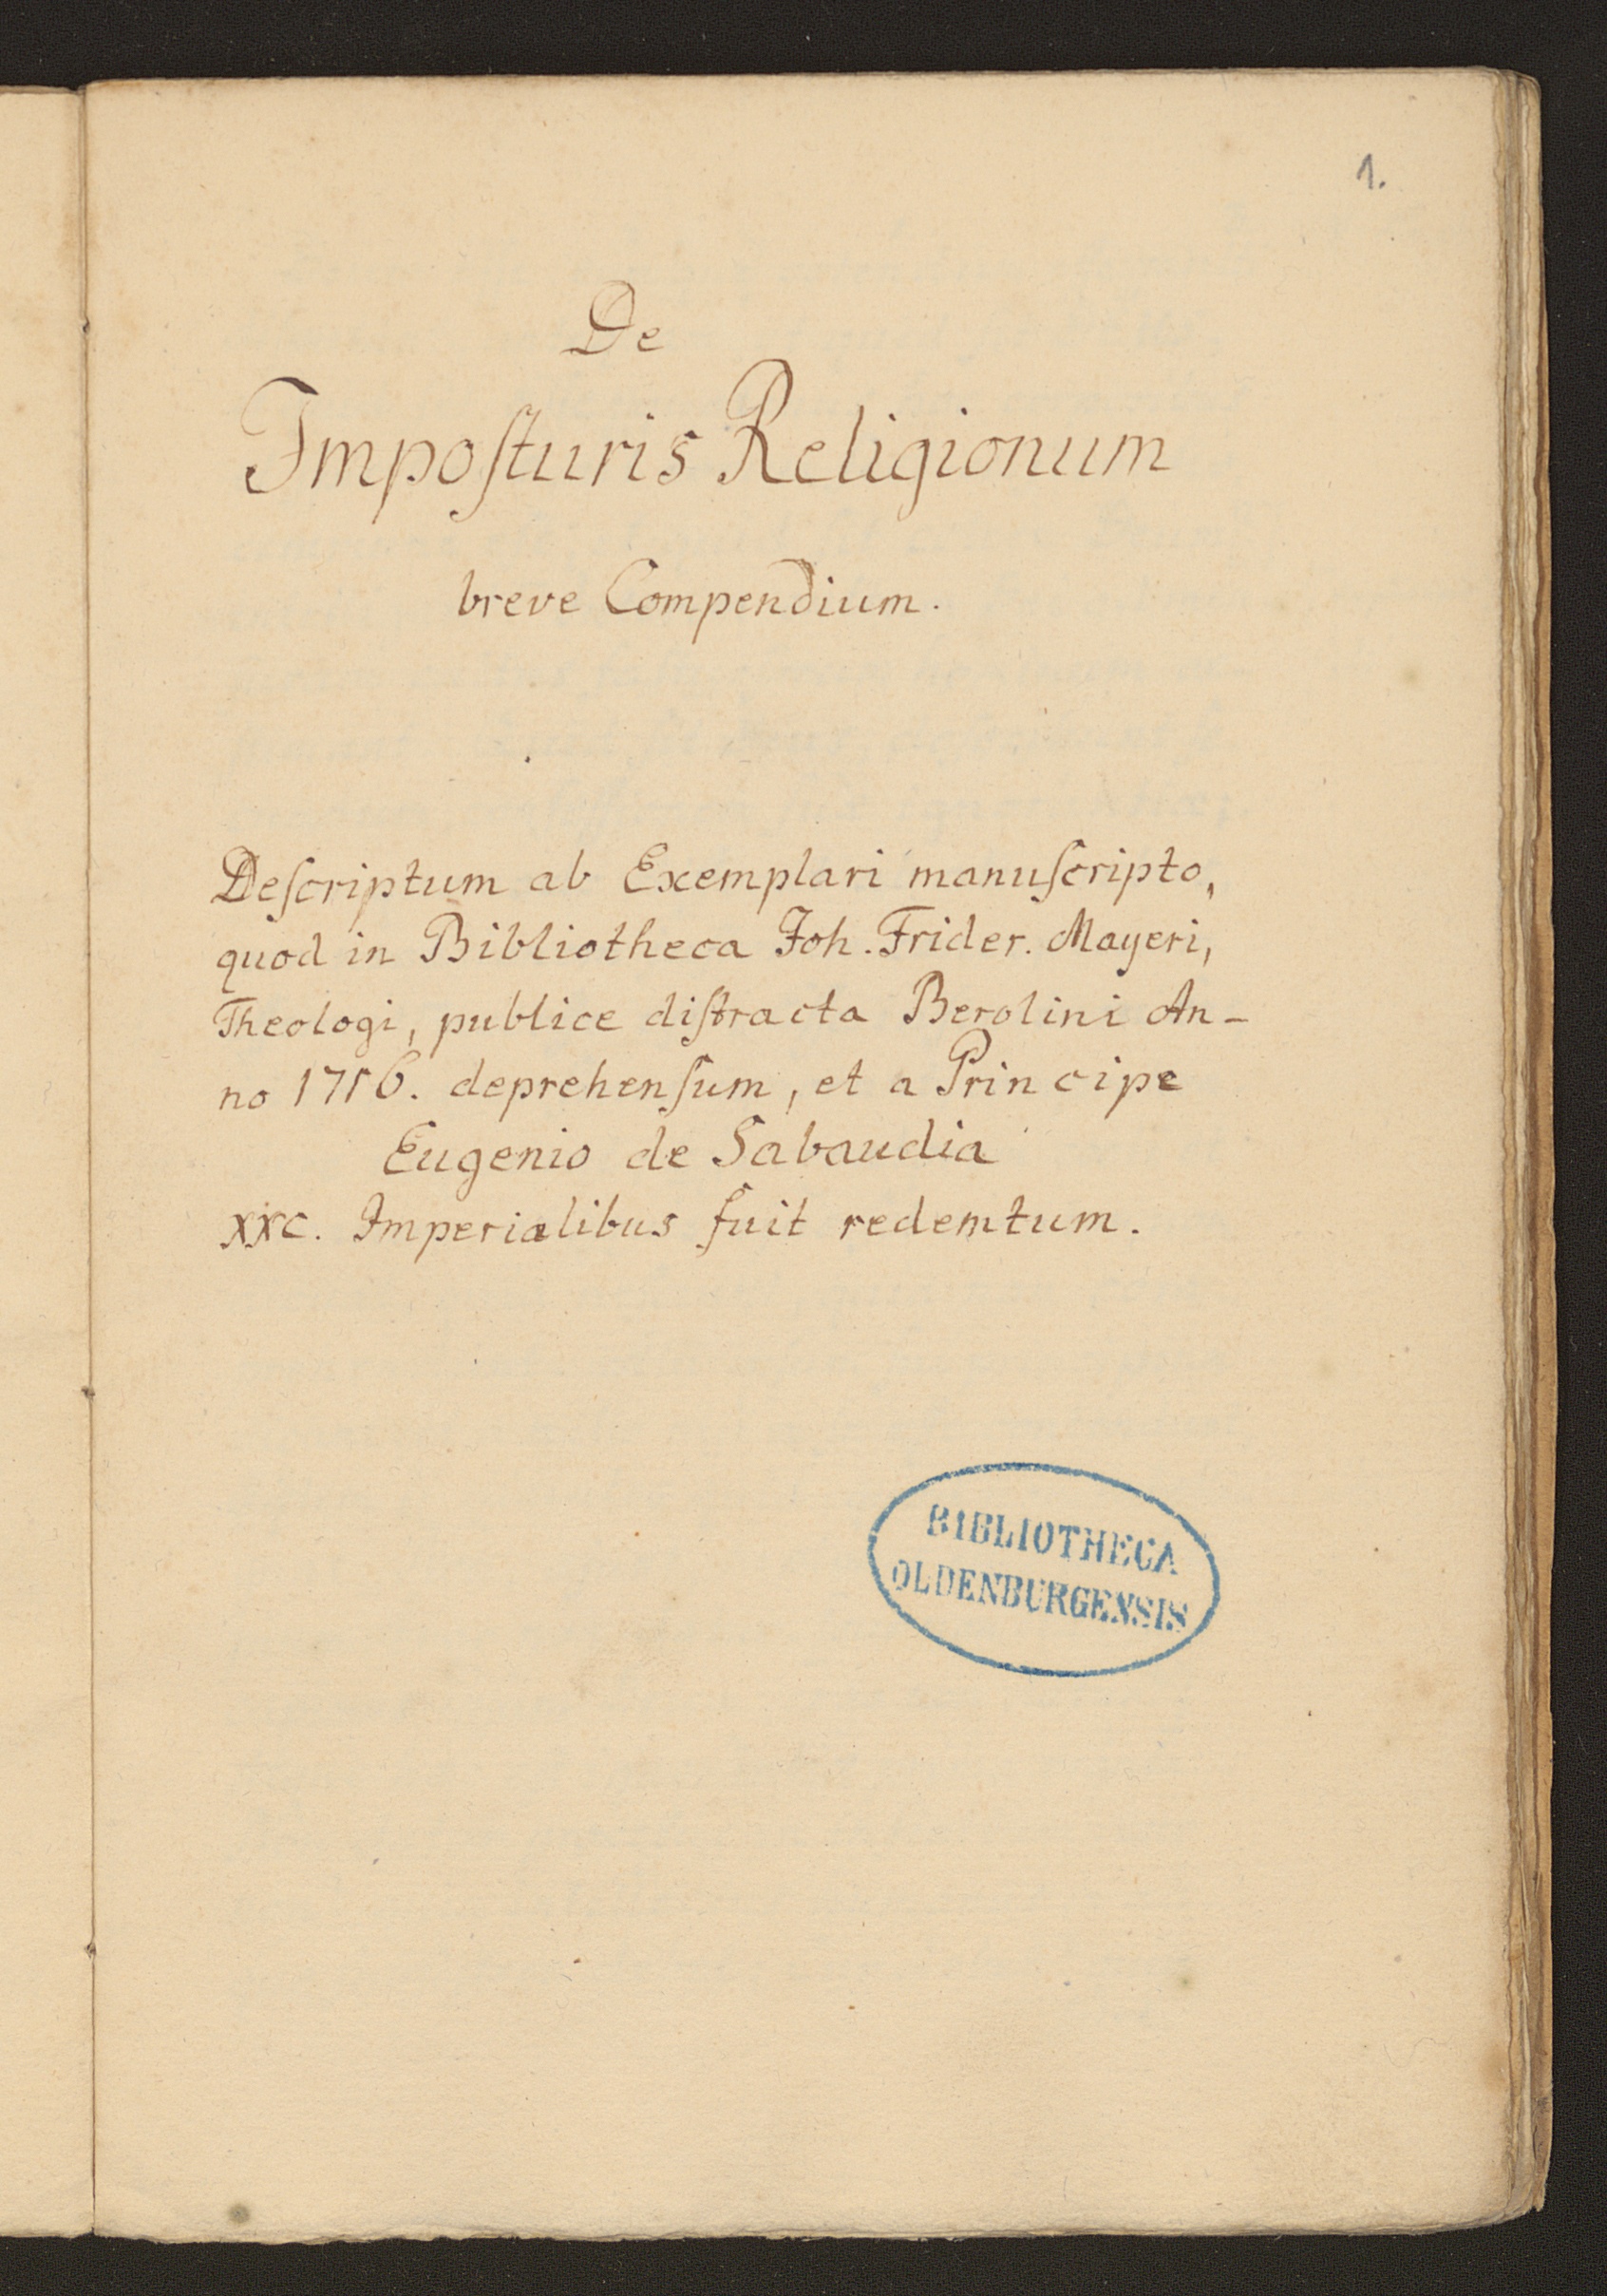 1.
De
Impoſturis Religionum
breve Compendium.
Deſcriptum ab Exemplari manuſcripto,
quod in Bibliotheca Joh. Frider. Mayeri,
Theologi, publice diſtracta Berolini An-
no 1716. deprehenſum, et a Principe
Eugenio de Sabaudia
xxc. Imperialibus fuit redemtum.
BIBLIOTHECA
OLDENBURGENSIS